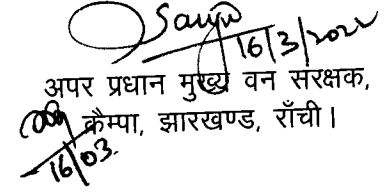 16/3/2022
अपर प्रधान मुख्य वन संरक्षक,
कैम्पा, झारखण्ड, राँची।
16/03.